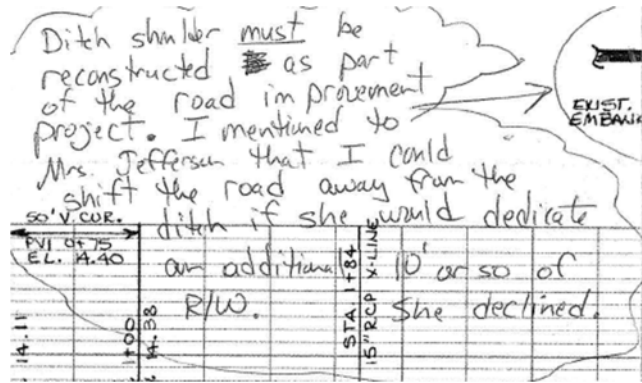 Ditch shoulder must be
reconstructed as part
of the road improvement
project. I mentioned to
Mrs. Jefferson that I could
shift the road away from the
ditch if she would dedicate
an additional 10' or so of
R/W. She declined.
EXIST.
EMBANK
50' V. CUR.
PVI 0+75
EL. 14.40
14.11
1+00
14.38
STA. 1+84
15" RCP X-LINE